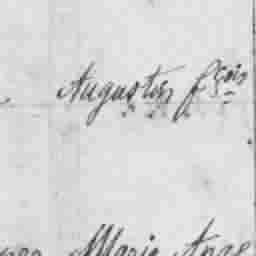 Augustin fçois
Marie Ange